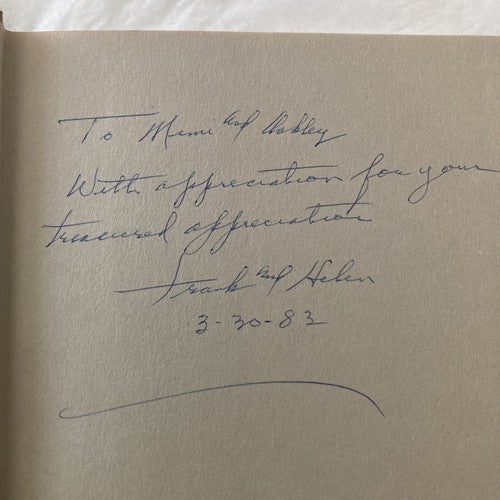 To Mimi and Oakley
With appreciation for your
treasured appreciation
Frank and Helen
3-30-83